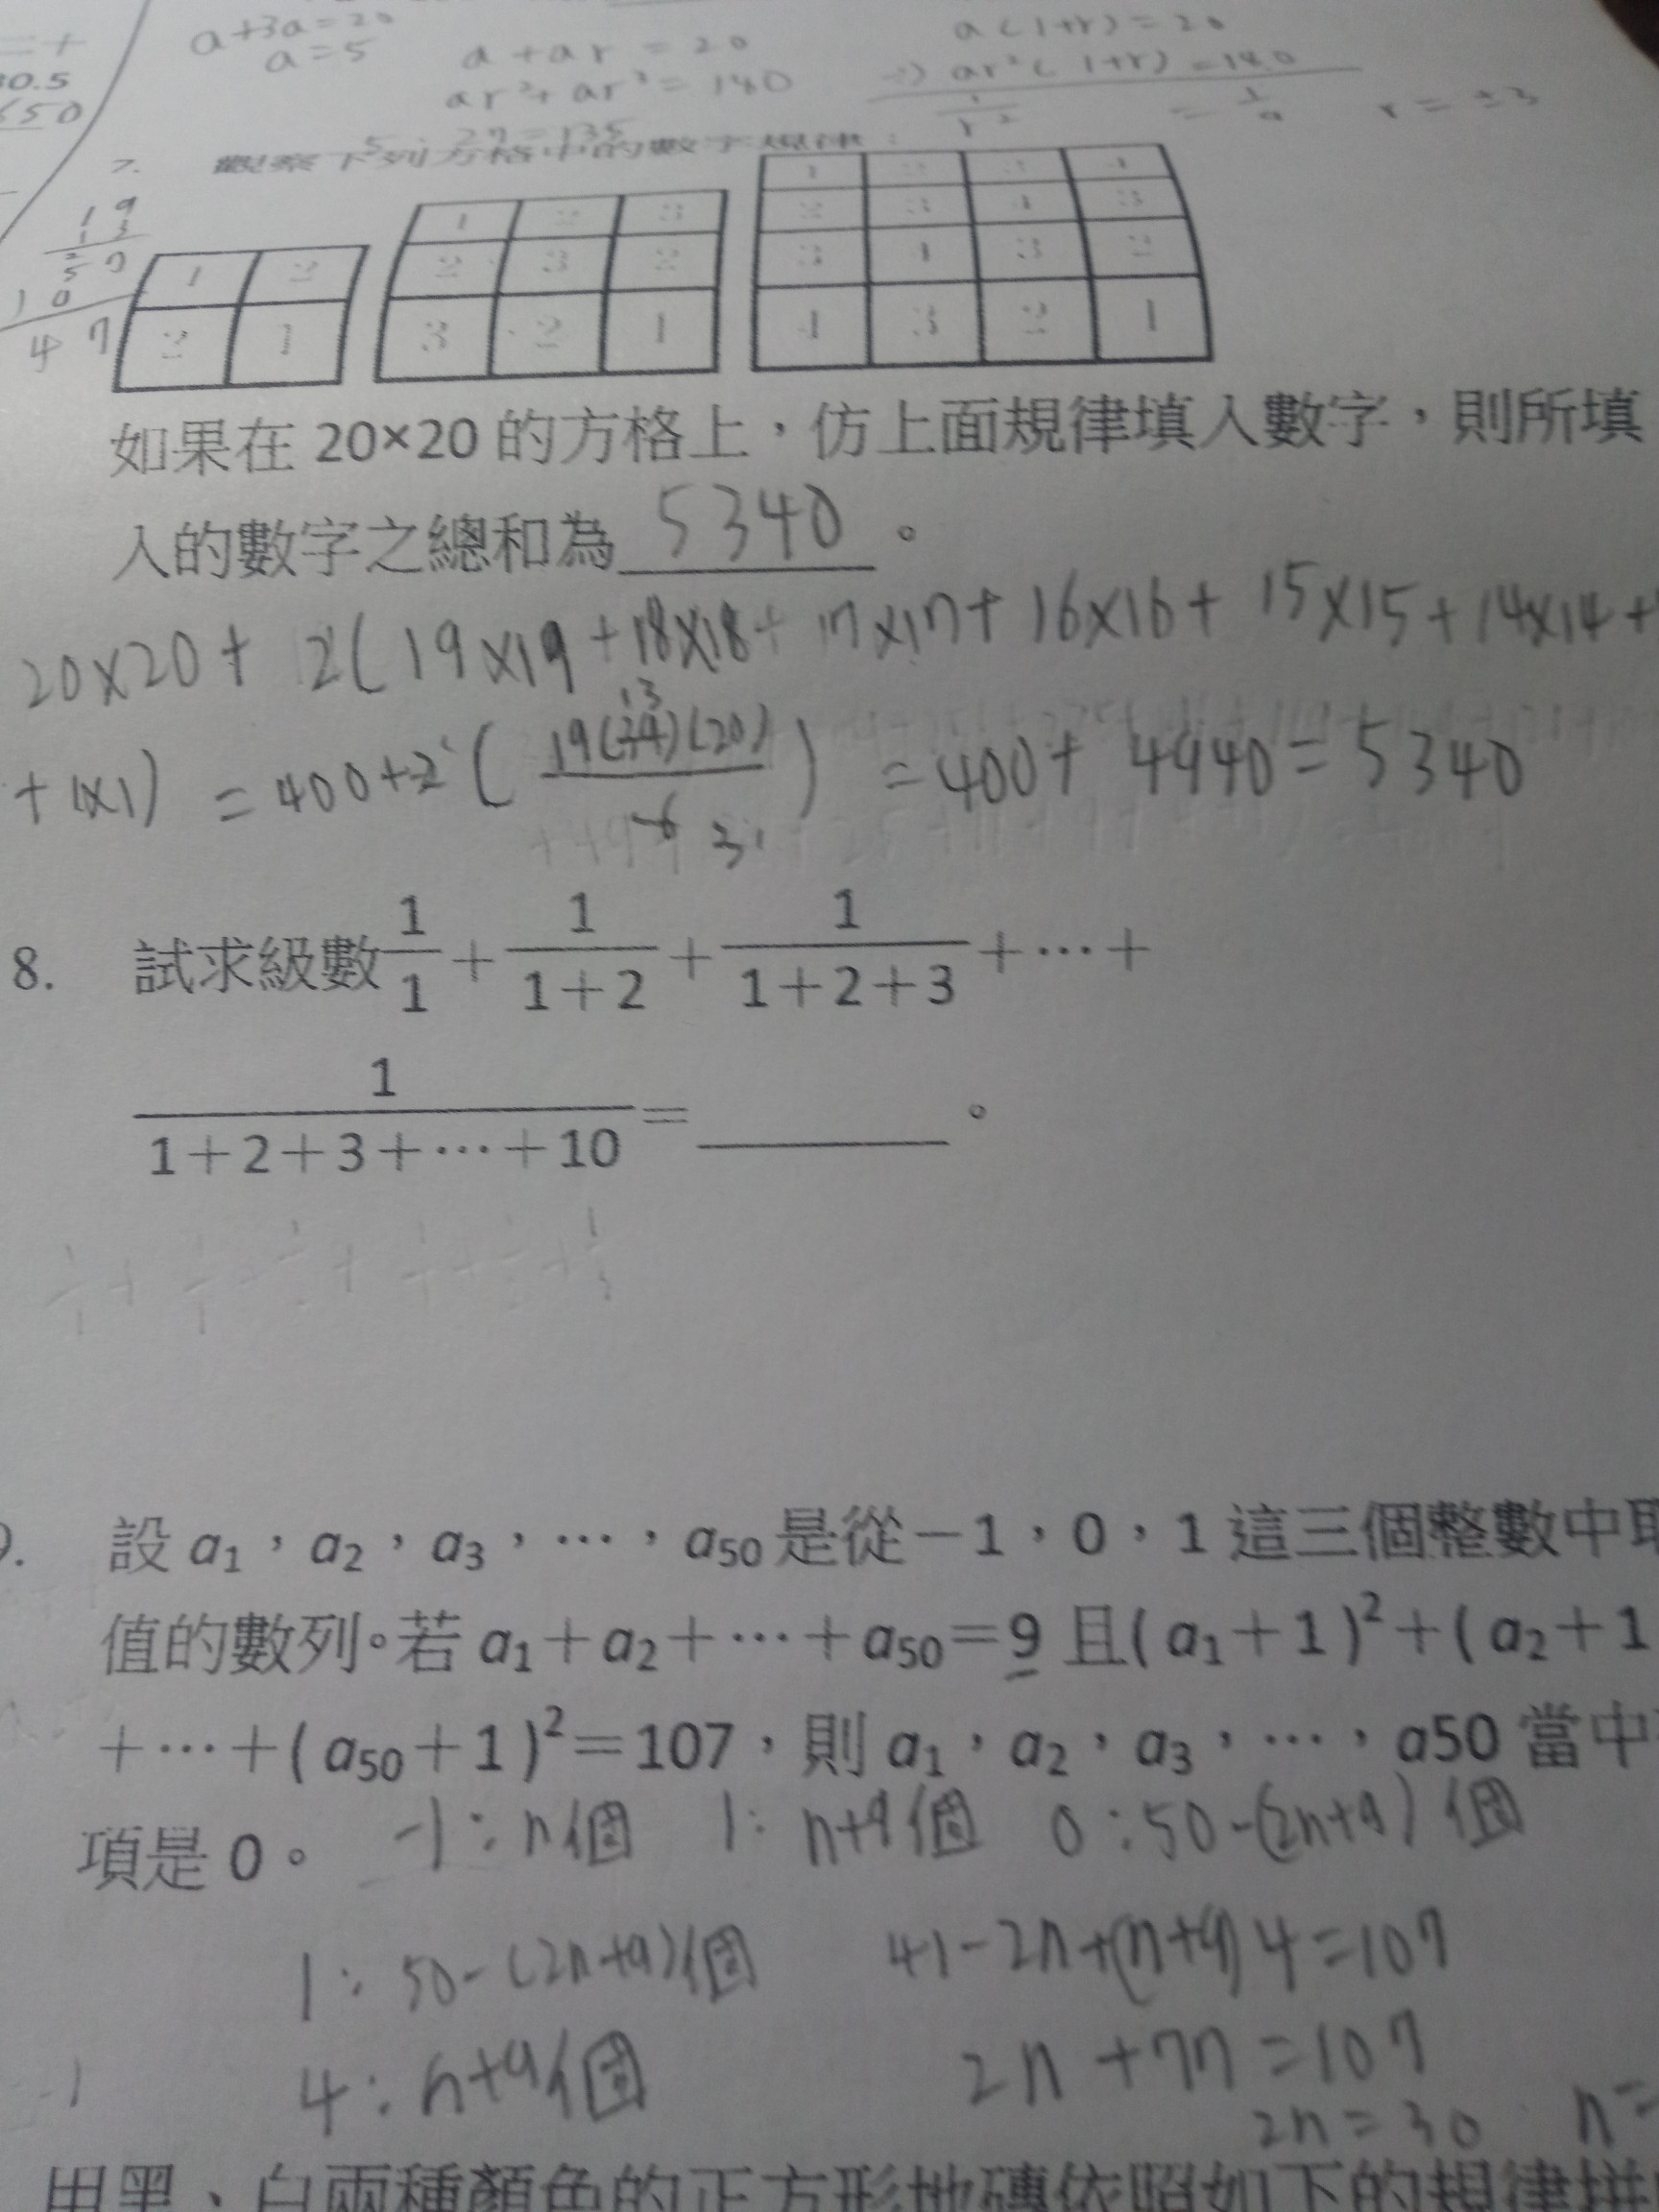 a+3a=20
a=5
a + ar = 20
ar²+ ar³ = 140
a(1+r) = 20
÷) ar²( 1+r) = 180
r = ±3
30.5
650
7. 觀察下列方格中的數字規律：
19
13
57
47
1 2
2 1
1 2 3
2 3 2
3 2 1
1 2 3 4
2 3 4 3
3 4 3 2
4 3 2 1
如果在 20×20 的方格上，仿上面規律填入數字，則所填
入的數字之總和為 5340 。
20×20 + 2(19×19 +18×18+ 17×17+ 16×16+ 15×15+14×14+
+1×1) =400+2( 19( )(20) / 6 ) =400+ 4940=5340
8. 試求級數 1/1 + 1/(1+2) + 1/(1+2+3) +⋯+
1/(1+2+3+⋯+10) = 。
9. 設 a₁，a₂，a₃，⋯，a₅₀ 是從－1，0，1 這三個整數中取
值的數列。若 a₁＋a₂＋⋯＋a₅₀＝9 且(a₁＋1)²＋(a₂＋1
＋⋯＋(a₅₀＋1)²＝107，則 a₁，a₂，a₃，⋯，a50 當中
項是 0。
-1：n個 1：n+9個 0：50-(2n+9)個
1：50-(2n+9)個 41-2n+(n+9)4=107
4：n+9個 2n +77=107
2n=30 n=
用黑、白兩種顏色的正方形地磚依照如下的規律拼